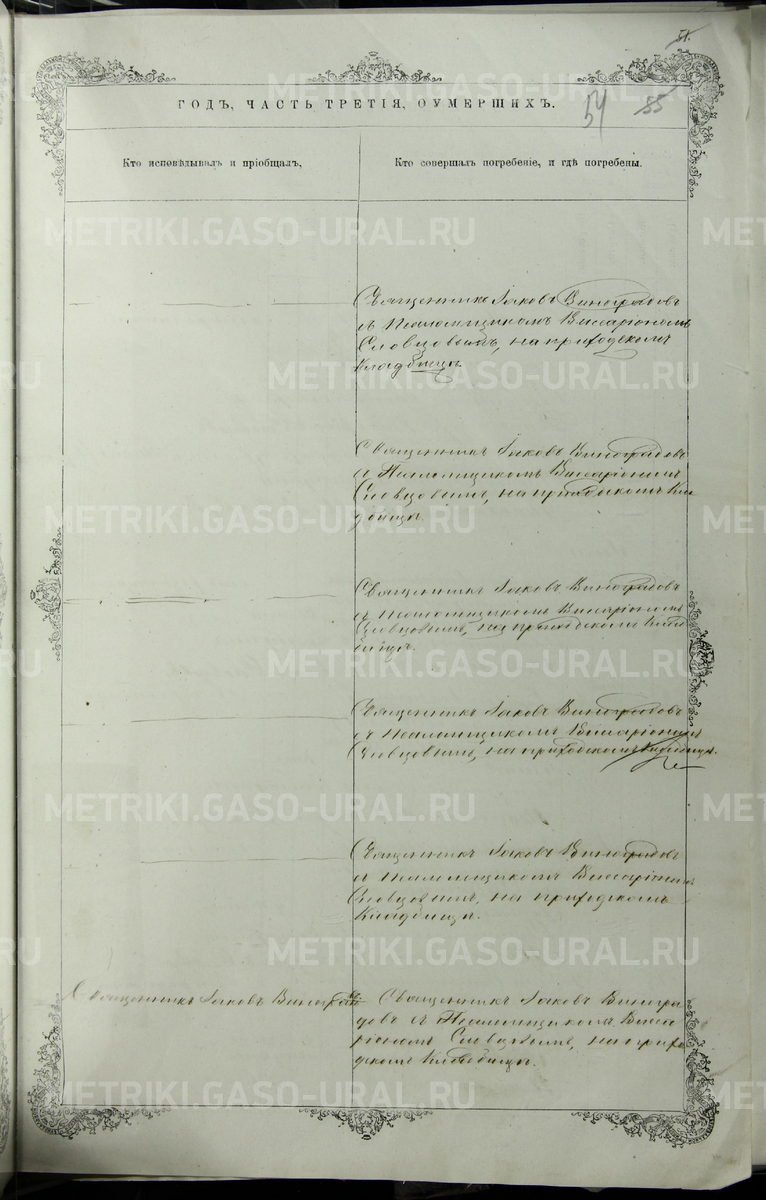 51.
54 55
ГОДЪ, ЧАСТЬ ТРЕТІЯ, ОУМЕРШИХЪ.
Кто исповѣдывалъ и пріобщалъ,
Кто совершалъ погребеніе, и гдѣ погребены.
Священникъ Іаковъ Виноградовъ
съ Псаломщикомъ Виссаріономъ
Словцовымъ, на приходскомъ
кладбищѣ.
Священникъ Іаковъ Виноградовъ
съ Псаломщикомъ Виссаріономъ
Словцовымъ, на приходскомъ Кла
дбищѣ.
Священникъ Іаковъ Виноградовъ
съ Псаломщикомъ Виссаріономъ
Словцовымъ, на приходскомъ Клад
бищѣ.
Священникъ Іаковъ Виноградовъ
съ Псаломщикомъ Виссаріономъ
Словцовымъ, на приходскомъ Кладбищѣ.
Священникъ Іаковъ Виноградовъ
съ Псаломщикомъ Виссаріономъ
Словцовымъ, на приходскомъ
Кладбищѣ.
Священникъ Іаковъ Виноградовъ
Священникъ Іаковъ Виногра
довъ съ Псаломщикомъ Висса
ріономъ Словцовымъ, на прихо
дскомъ Кладбищѣ.
METRIKI.GASO-URAL.RU